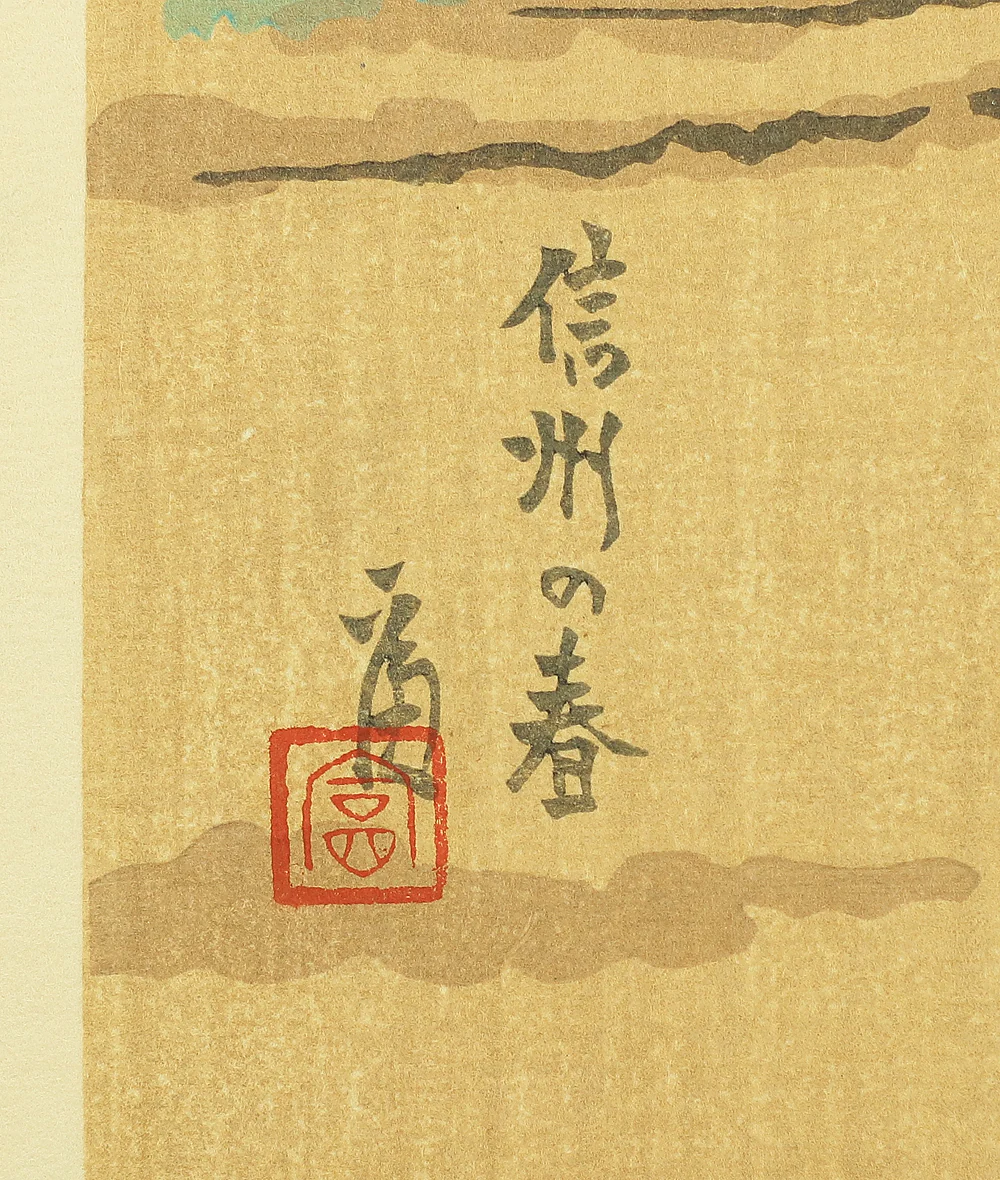 信州の春
富